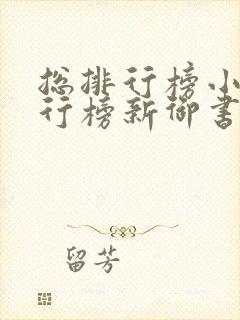 总排行榜小
行榜新御书
留芳